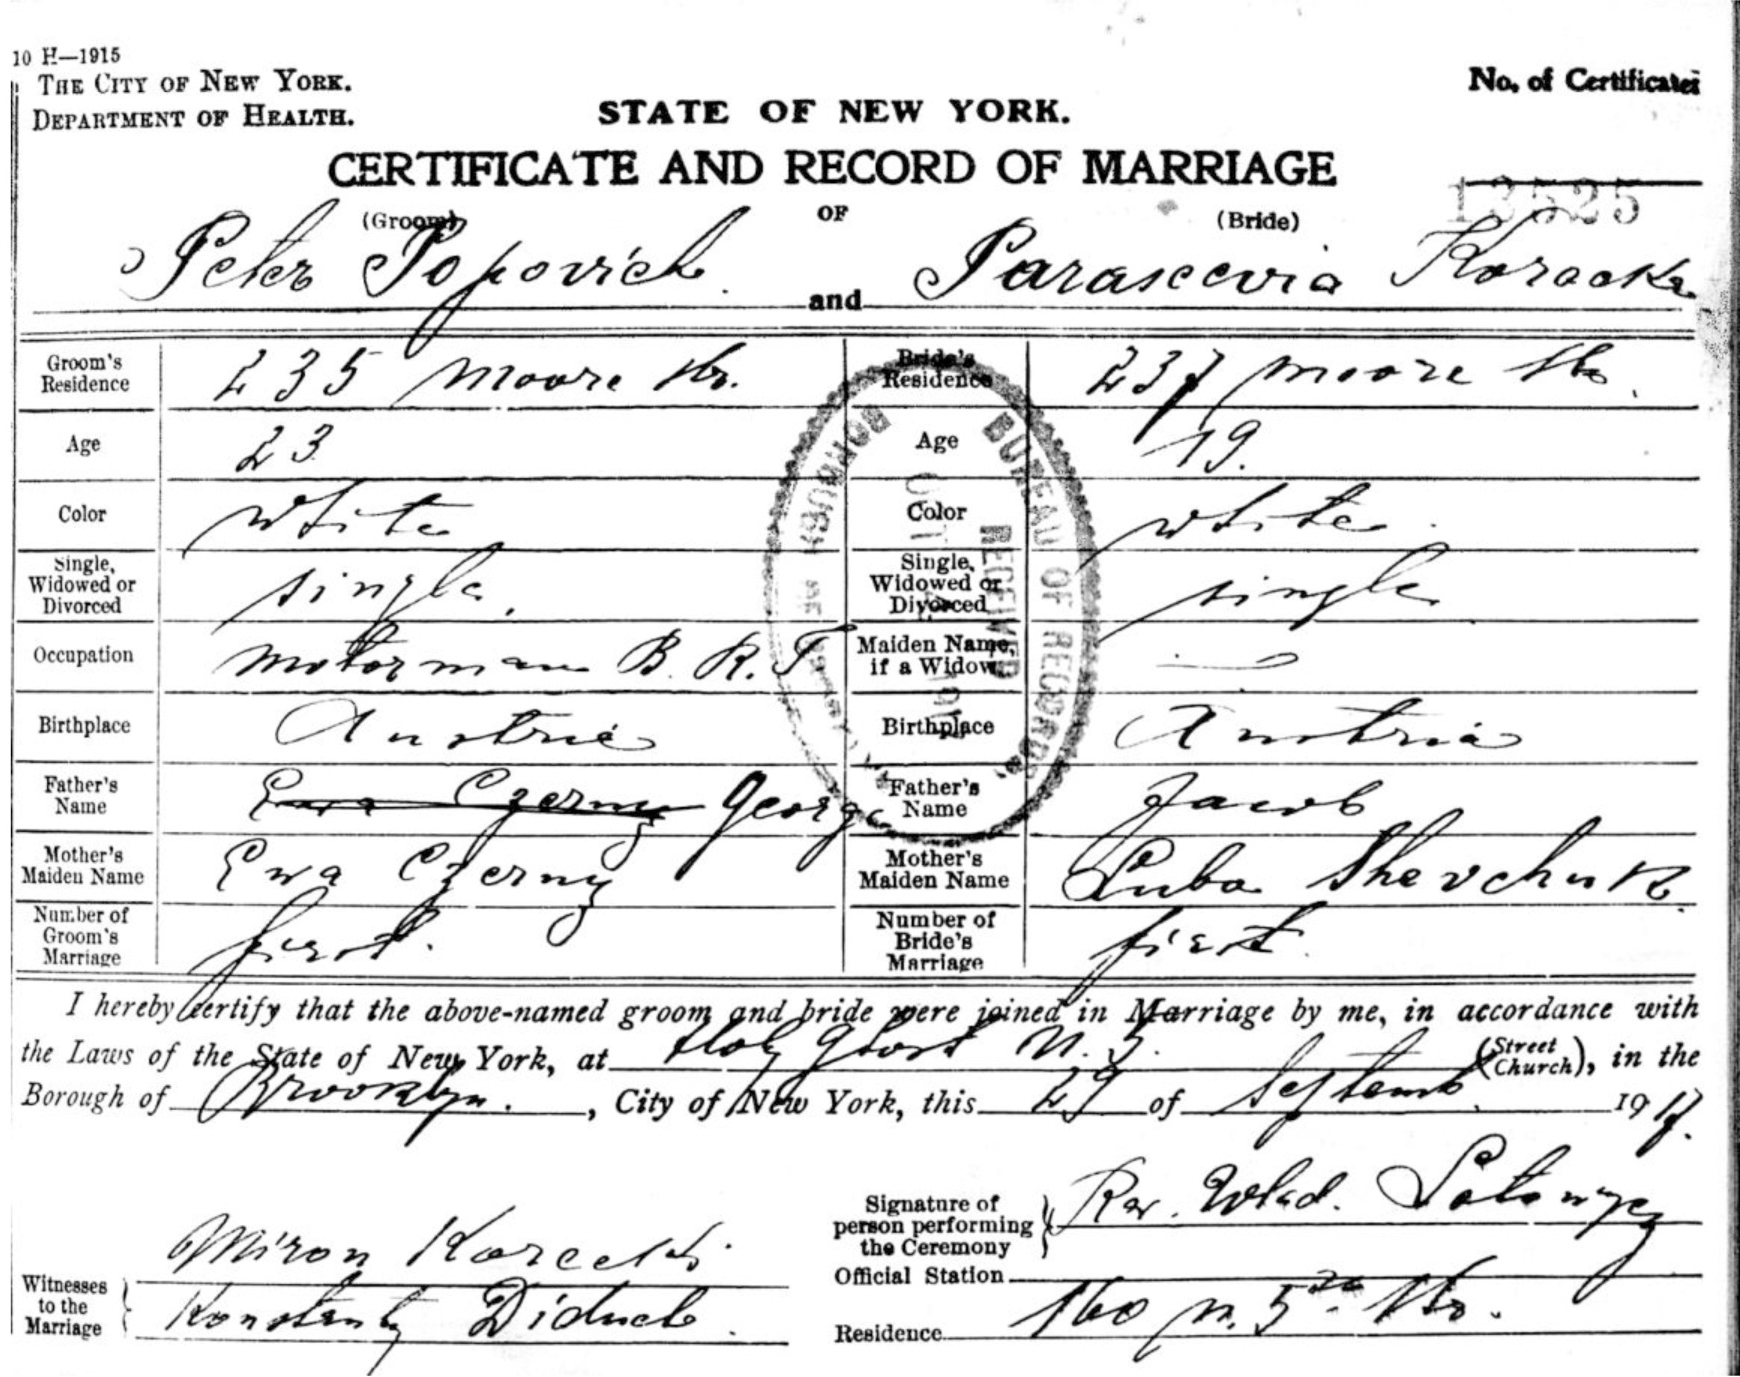 10 H—1915
THE CITY OF NEW YORK.
DEPARTMENT OF HEALTH.
No. of Certificate
STATE OF NEW YORK.
CERTIFICATE AND RECORD OF MARRIAGE
13525
(Groom) OF (Bride)
Peter Popovich and Parascevia
Groom's Residence 235 Moore Str. Bride's Residence 237 Moore Str.
Age 23 Age 19.
Color white Color white
Single, Widowed or Divorced single. Single, Widowed or Divorced single
Occupation Motorman B. R. T Maiden Name, if a Widow —
Birthplace Austria Birthplace Austria
Father's Name Ewa Czerny George Father's Name Jacob
Mother's Maiden Name Ewa Czerny Mother's Maiden Name Luba Shevchuk
Number of Groom's Marriage first. Number of Bride's Marriage first
BUREAU OF RECORDS,
RECEIVED
OCT
BOROUGH OF
I hereby certify that the above-named groom and bride were joined in Marriage by me, in accordance with
the Laws of the State of New York, at Holy Ghost N. 5. (Street Church), in the
Borough of Brooklyn., City of New York, this 29 of Septemb 1917.
Signature of person performing the Ceremony Rev. Wlad.
Witnesses to the Marriage Miron
Konstanty Diduch
Official Station
Residence 160 N. 5th Str.